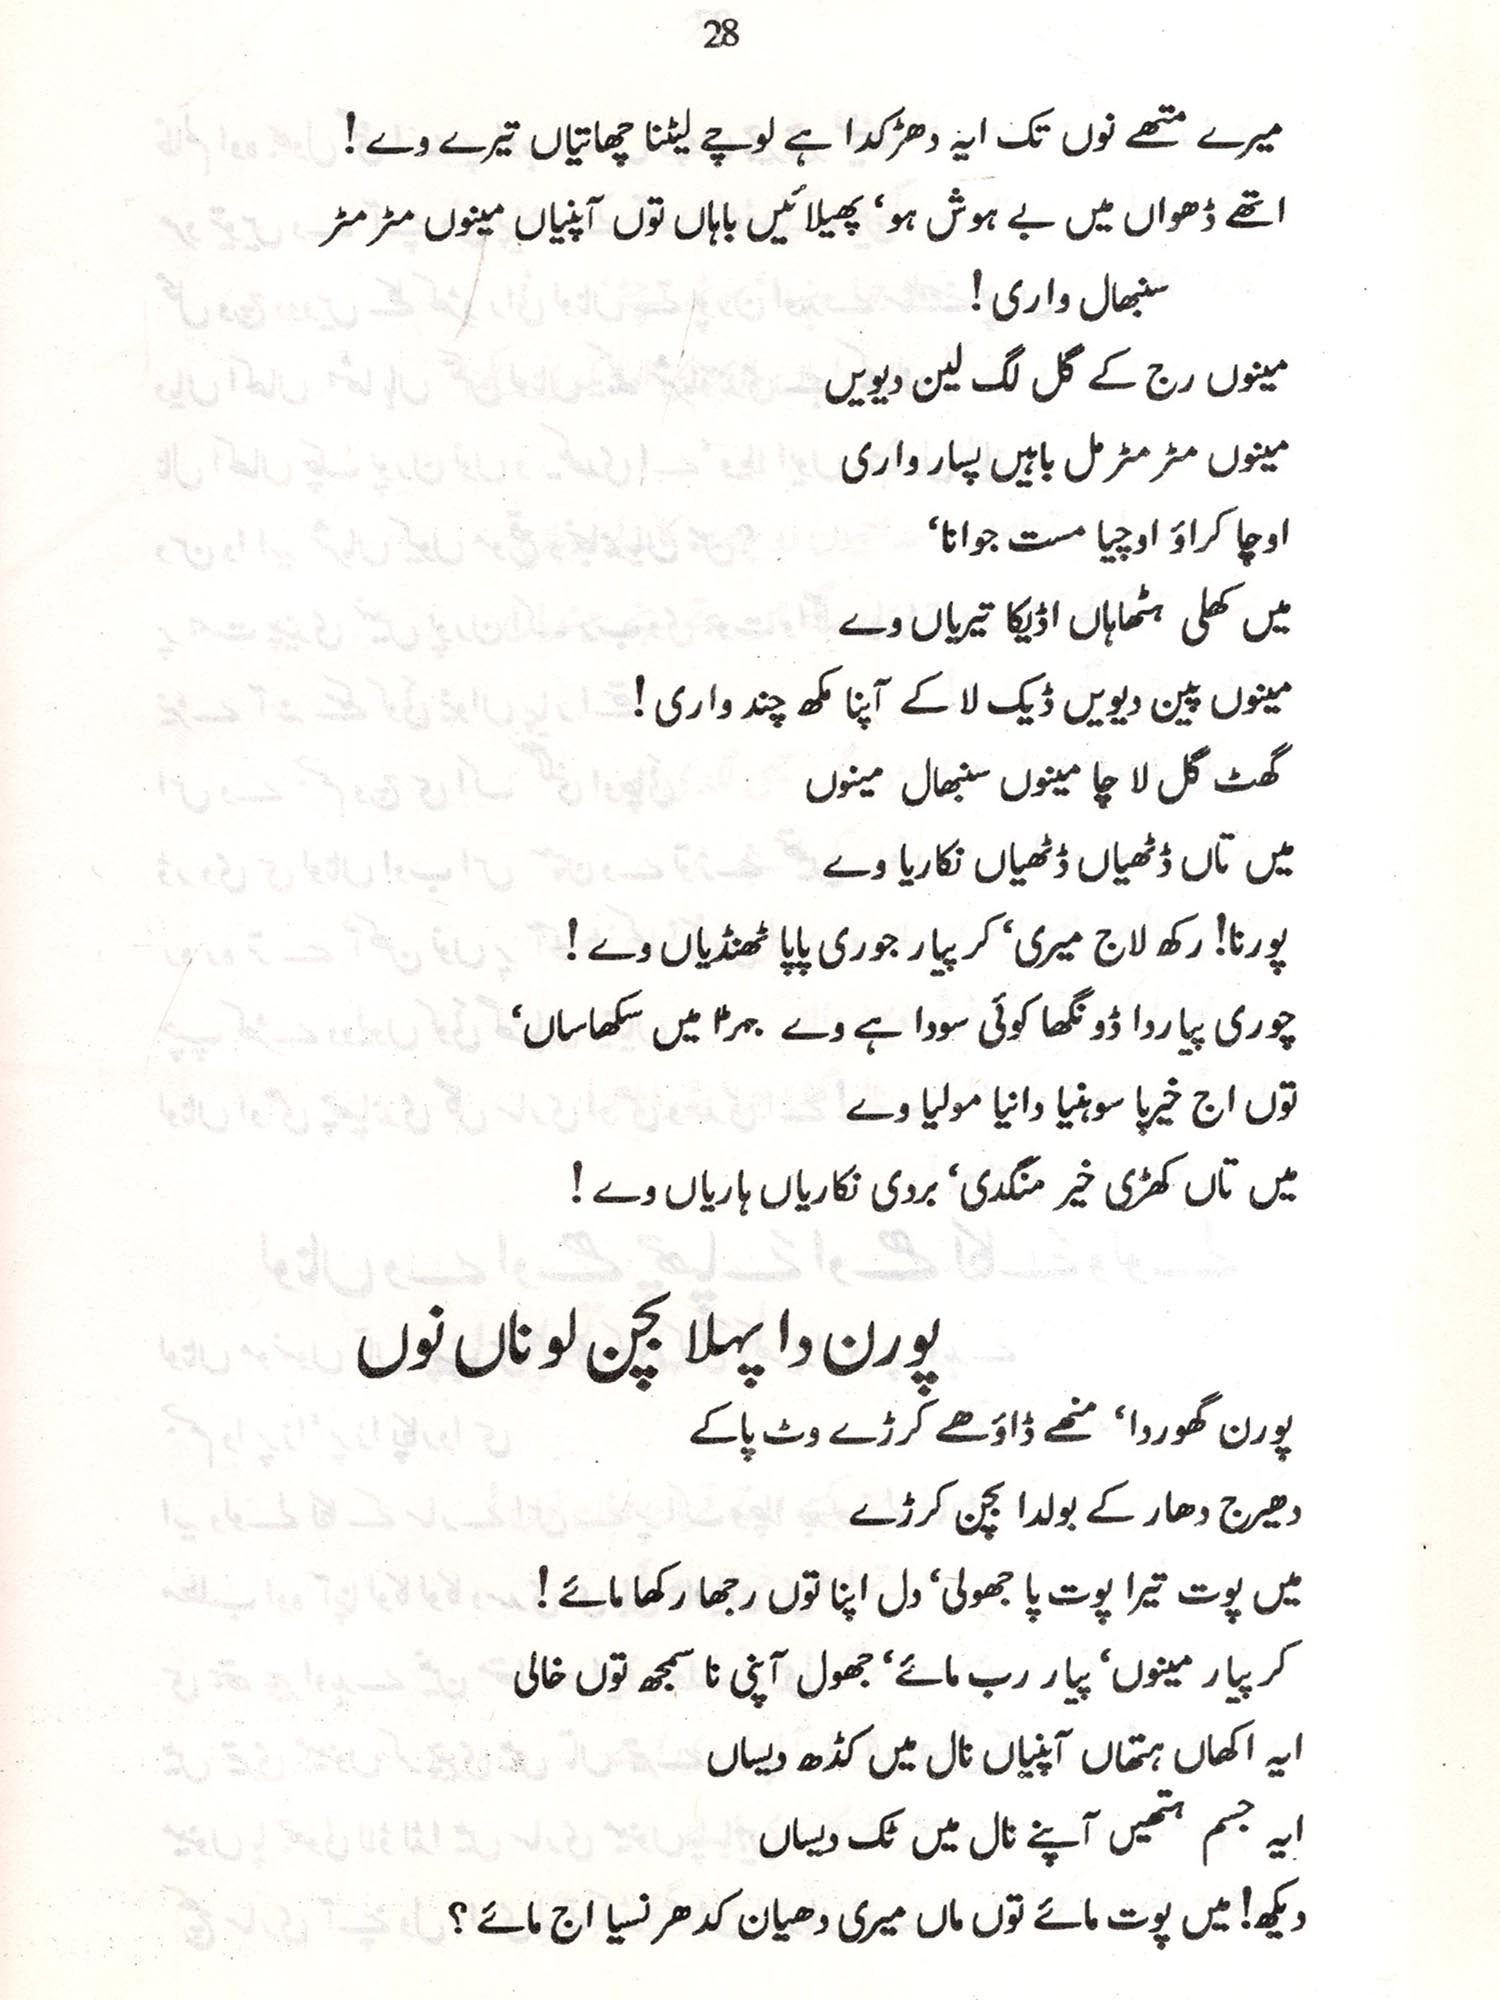 28
میرے متھے نوں تک ایہ دھڑکدا ہے لوچے لیٹنا چھاتیاں تیرے وے !
اتھے ڈھواں میں بے ہوش ہو، پھیلائیں باہاں توں آپنیاں مینوں مٹر مٹر
سنبھال واری !
مینوں رج کے گل لگ لین دیویں
مینوں مٹر مٹر مل باہیں پسار واری
اوچا کراؤ اوچیا مست جوانا،
میں کھلی ہٹھاہاں اڈیکا تیریاں وے
مینوں پین دیویں ڈیک لا کے آپنا مکھ چند واری !
گھٹ گل لا چا مینوں سنبھال مینوں
میں تاں ڈٹھیاں ڈٹھیاں نکاریا وے
پورنا! رکھ لاج میری، کر پیار جوری پاپا ٹھنڈیاں وے !
چوری پیار دا ڈونگھا کوئی سودا ہے وے میں سکھاساں،
توں اج خیر پا سوہنیا دانیا مولیا وے
میں تاں کھڑی خیر منگدی، بردی نکاریاں ہاریاں وے !
پورن دا پہلا بچن لوناں نوں
پورن گھوردا، منھے ڈاؤھے کرڑے وٹ پا کے
دھیرج دھار کے بولدا بچن کرڑے
میں پوت تیرا پوت پا جھولی، دل اپنا توں رجھا رکھا مائے !
کر پیار مینوں، پیار رب مائے، جھول آپنی نا سمجھ توں خالی
ایہ اکھاں ہتھاں آپنیاں نال میں کڈھ دیساں
ایہ جسم ہتھیں آپنے نال میں ٹک دیساں
دیکھ! میں پوت مائے توں ماں میری دھیان کدھر نسیا اج مائے ؟